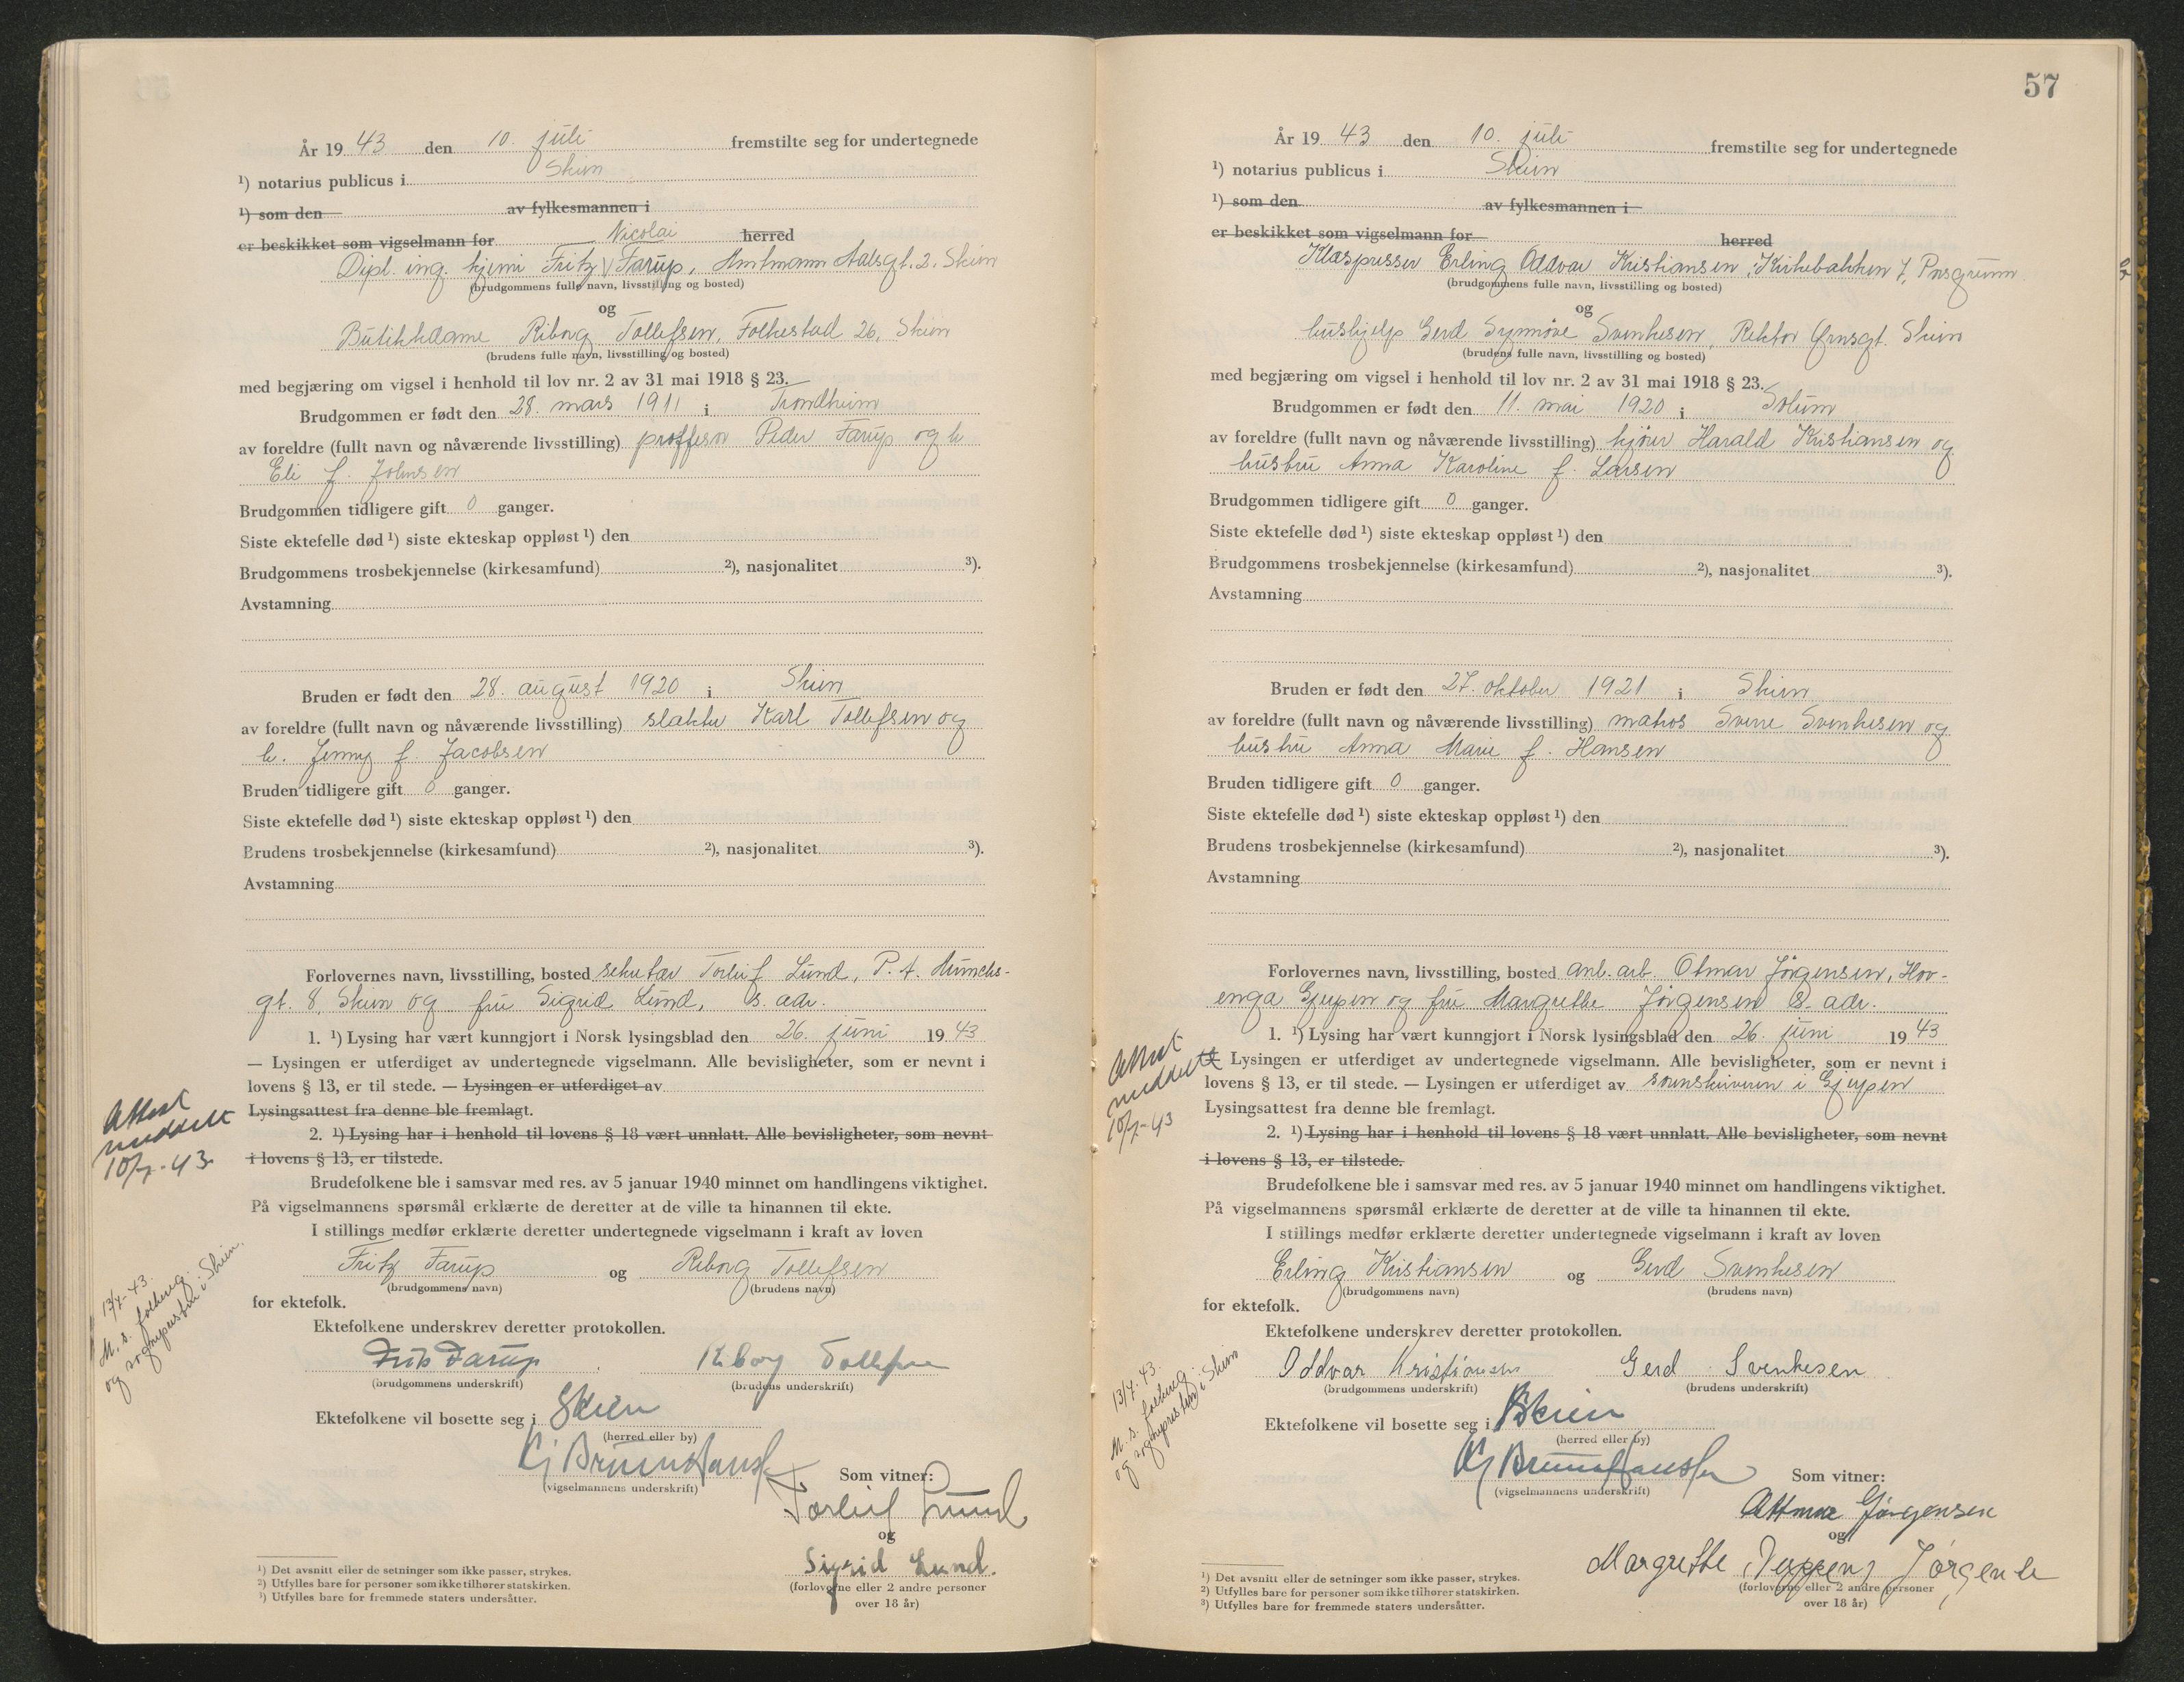 År 19 43 den 10. juli fremstilte seg for undertegnede
¹) notarius publicus i Skien
¹) som den av fylkesmannen i
er beskikket som vigselmann for herred
Nicolai
Dipl. ing. kjemi Fritz \/ Farup, Amtmann Aalsgt. 2. Skien
(brudgommens fulle navn, livsstilling og bosted)
og
Butikkdame Riborg Tollefsen, Folkestad 26, Skien
(brudens fulle navn, livsstilling og bosted)
med begjæring om vigsel i henhold til lov nr. 2 av 31 mai 1918 § 23.
Brudgommen er født den 28. mars 1911 i Trondheim
av foreldre (fullt navn og nåværende livsstilling) proffesor Peder Farup og h
Eli f. Johnsen
Brudgommen tidligere gift 0 ganger.
Siste ektefelle død ¹) siste ekteskap oppløst ¹) den
Brudgommens trosbekjennelse (kirkesamfund) ²), nasjonalitet ³).
Avstamning
Bruden er født den 28. august 1920 i Skien
av foreldre (fullt navn og nåværende livsstilling) slakter Karl Tollefsen og
h. Jenny f. Jacobsen
Bruden tidligere gift 0 ganger.
Siste ektefelle død ¹) siste ekteskap oppløst ¹) den
Brudens trosbekjennelse (kirkesamfund) ²), nasjonalitet ³).
Avstamning
Forlovernes navn, livsstilling, bosted sekretær Torleif Lund, P. A. Munchs-
gt. 8, Skien og fru Sigrid Lund, s. adr.
1. ¹) Lysing har vært kunngjort i Norsk lysingsblad den 26. juni 19 43
— Lysingen er utferdiget av undertegnede vigselmann. Alle bevisligheter, som er nevnt i
lovens § 13, er til stede. — Lysingen er utferdiget av
Lysingsattest fra denne ble fremlagt.
Attest
meddelt
10/7-43
2. ¹) Lysing har i henhold til lovens § 18 vært unnlatt. Alle bevisligheter, som nevnt
i lovens § 13, er tilstede.
Brudefolkene ble i samsvar med res. av 5 januar 1940 minnet om handlingens viktighet.
På vigselmannens spørsmål erklærte de deretter at de ville ta hinannen til ekte.
I stillings medfør erklærte deretter undertegnede vigselmann i kraft av loven
Fritz Farup og Riborg Tollefsen
(brudgommens navn) (brudens navn)
for ektefolk.
13/7-43.
M. s. folkereg.
og sognepresten i Skien.
Ektefolkene underskrev deretter protokollen.
Fritz Farup Riborg Tollefsen
(brudgommens underskrift) (brudens underskrift)
Ektefolkene vil bosette seg i Skien
(herred eller by)
(vigselmannens underskrift)
Som vitner:
Torleif Lund
og
Sigrid Lund.
(forloverne eller 2 andre personer
over 18 år)
¹) Det avsnitt eller de setninger som ikke passer, strykes.
²) Utfylles bare for personer som ikke tilhører statskirken.
³) Utfylles bare for fremmede staters undersåtter.
57
År 19 43 den 10. juli fremstilte seg for undertegnede
¹) notarius publicus i Skien
¹) som den av fylkesmannen i
er beskikket som vigselmann for herred
Klæspresser Erling Oddvar Kristiansen, Kirkebakken 7, Porsgrunn
(brudgommens fulle navn, livsstilling og bosted)
og
hushjelp Gerd Synnøve Svenkesen, Rektor Ørnsgt. Skien
(brudens fulle navn, livsstilling og bosted)
med begjæring om vigsel i henhold til lov nr. 2 av 31 mai 1918 § 23.
Brudgommen er født den 11. mai 1920 i Solum
av foreldre (fullt navn og nåværende livsstilling) kjører Harald Kristiansen og
hustru Anna Karoline f. Larsen
Brudgommen tidligere gift 0 ganger.
Siste ektefelle død ¹) siste ekteskap oppløst ¹) den
Brudgommens trosbekjennelse (kirkesamfund) ²), nasjonalitet ³).
Avstamning
Bruden er født den 27. oktober 1921 i Skien
av foreldre (fullt navn og nåværende livsstilling) matros Sverre Svenkesen og
hustru Anna Marie f. Hansen
Bruden tidligere gift 0 ganger.
Siste ektefelle død ¹) siste ekteskap oppløst ¹) den
Brudens trosbekjennelse (kirkesamfund) ²), nasjonalitet ³).
Avstamning
Forlovernes navn, livsstilling, bosted anl. arb. Otmar Jørgensen, Hov-
enga Gjerpen og fru Margrethe Jørgensen s. adr.
1. ¹) Lysing har vært kunngjort i Norsk lysingsblad den 26. juni 19 43
— Lysingen er utferdiget av undertegnede vigselmann. Alle bevisligheter, som er nevnt i
lovens § 13, er til stede. — Lysingen er utferdiget av sorenskriveren i Gjerpen
Lysingsattest fra denne ble fremlagt.
Attest
meddelt
10/7-43
2. ¹) Lysing har i henhold til lovens § 18 vært unnlatt. Alle bevisligheter, som nevnt
i lovens § 13, er tilstede.
Brudefolkene ble i samsvar med res. av 5 januar 1940 minnet om handlingens viktighet.
På vigselmannens spørsmål erklærte de deretter at de ville ta hinannen til ekte.
I stillings medfør erklærte deretter undertegnede vigselmann i kraft av loven
Erling Kristiansen og Gerd Svenkesen
(brudgommens navn) (brudens navn)
for ektefolk.
13/7.43.
M. s. folkereg.
og sognepresten i Skien
Ektefolkene underskrev deretter protokollen.
Oddvar Kristiansen Gerd Svenkesen
(brudgommens underskrift) (brudens underskrift)
Ektefolkene vil bosette seg i Skien
(herred eller by)
(vigselmannens underskrift)
Som vitner:
Attmar Jørgensen
og
Margrethe Jørgensen
(forloverne eller 2 andre personer
over 18 år)
¹) Det avsnitt eller de setninger som ikke passer, strykes.
²) Utfylles bare for personer som ikke tilhører statskirken.
³) Utfylles bare for fremmede staters undersåtter.